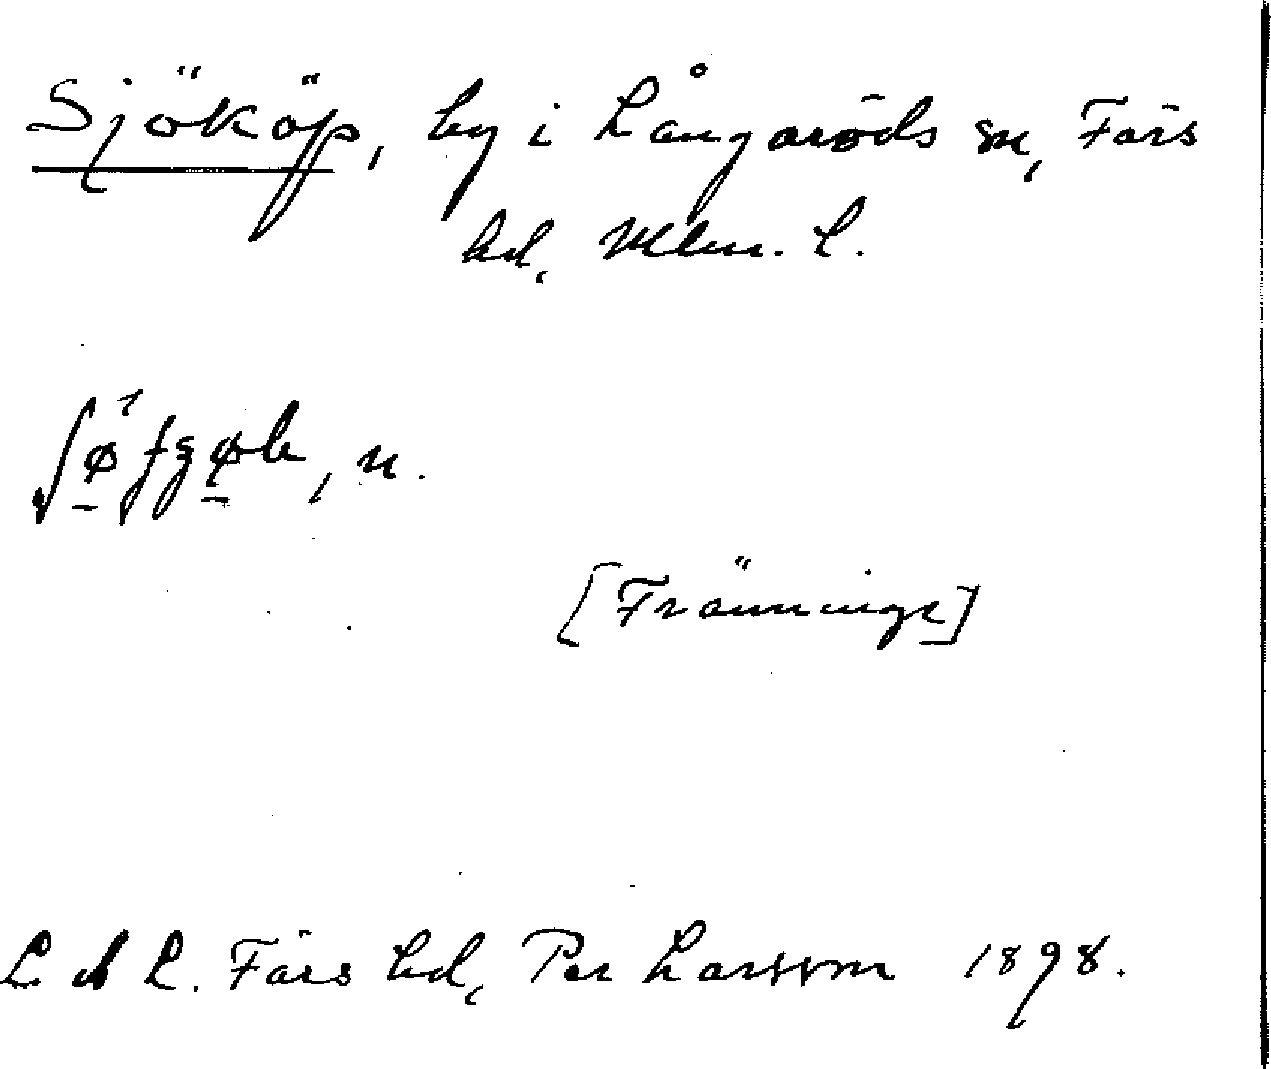 Sjököp, by i Långaröds sn, Färs
hd, Mlm. L.
n.
[Fränninge]
L A L. Färs hd, Per Larsson 1898.